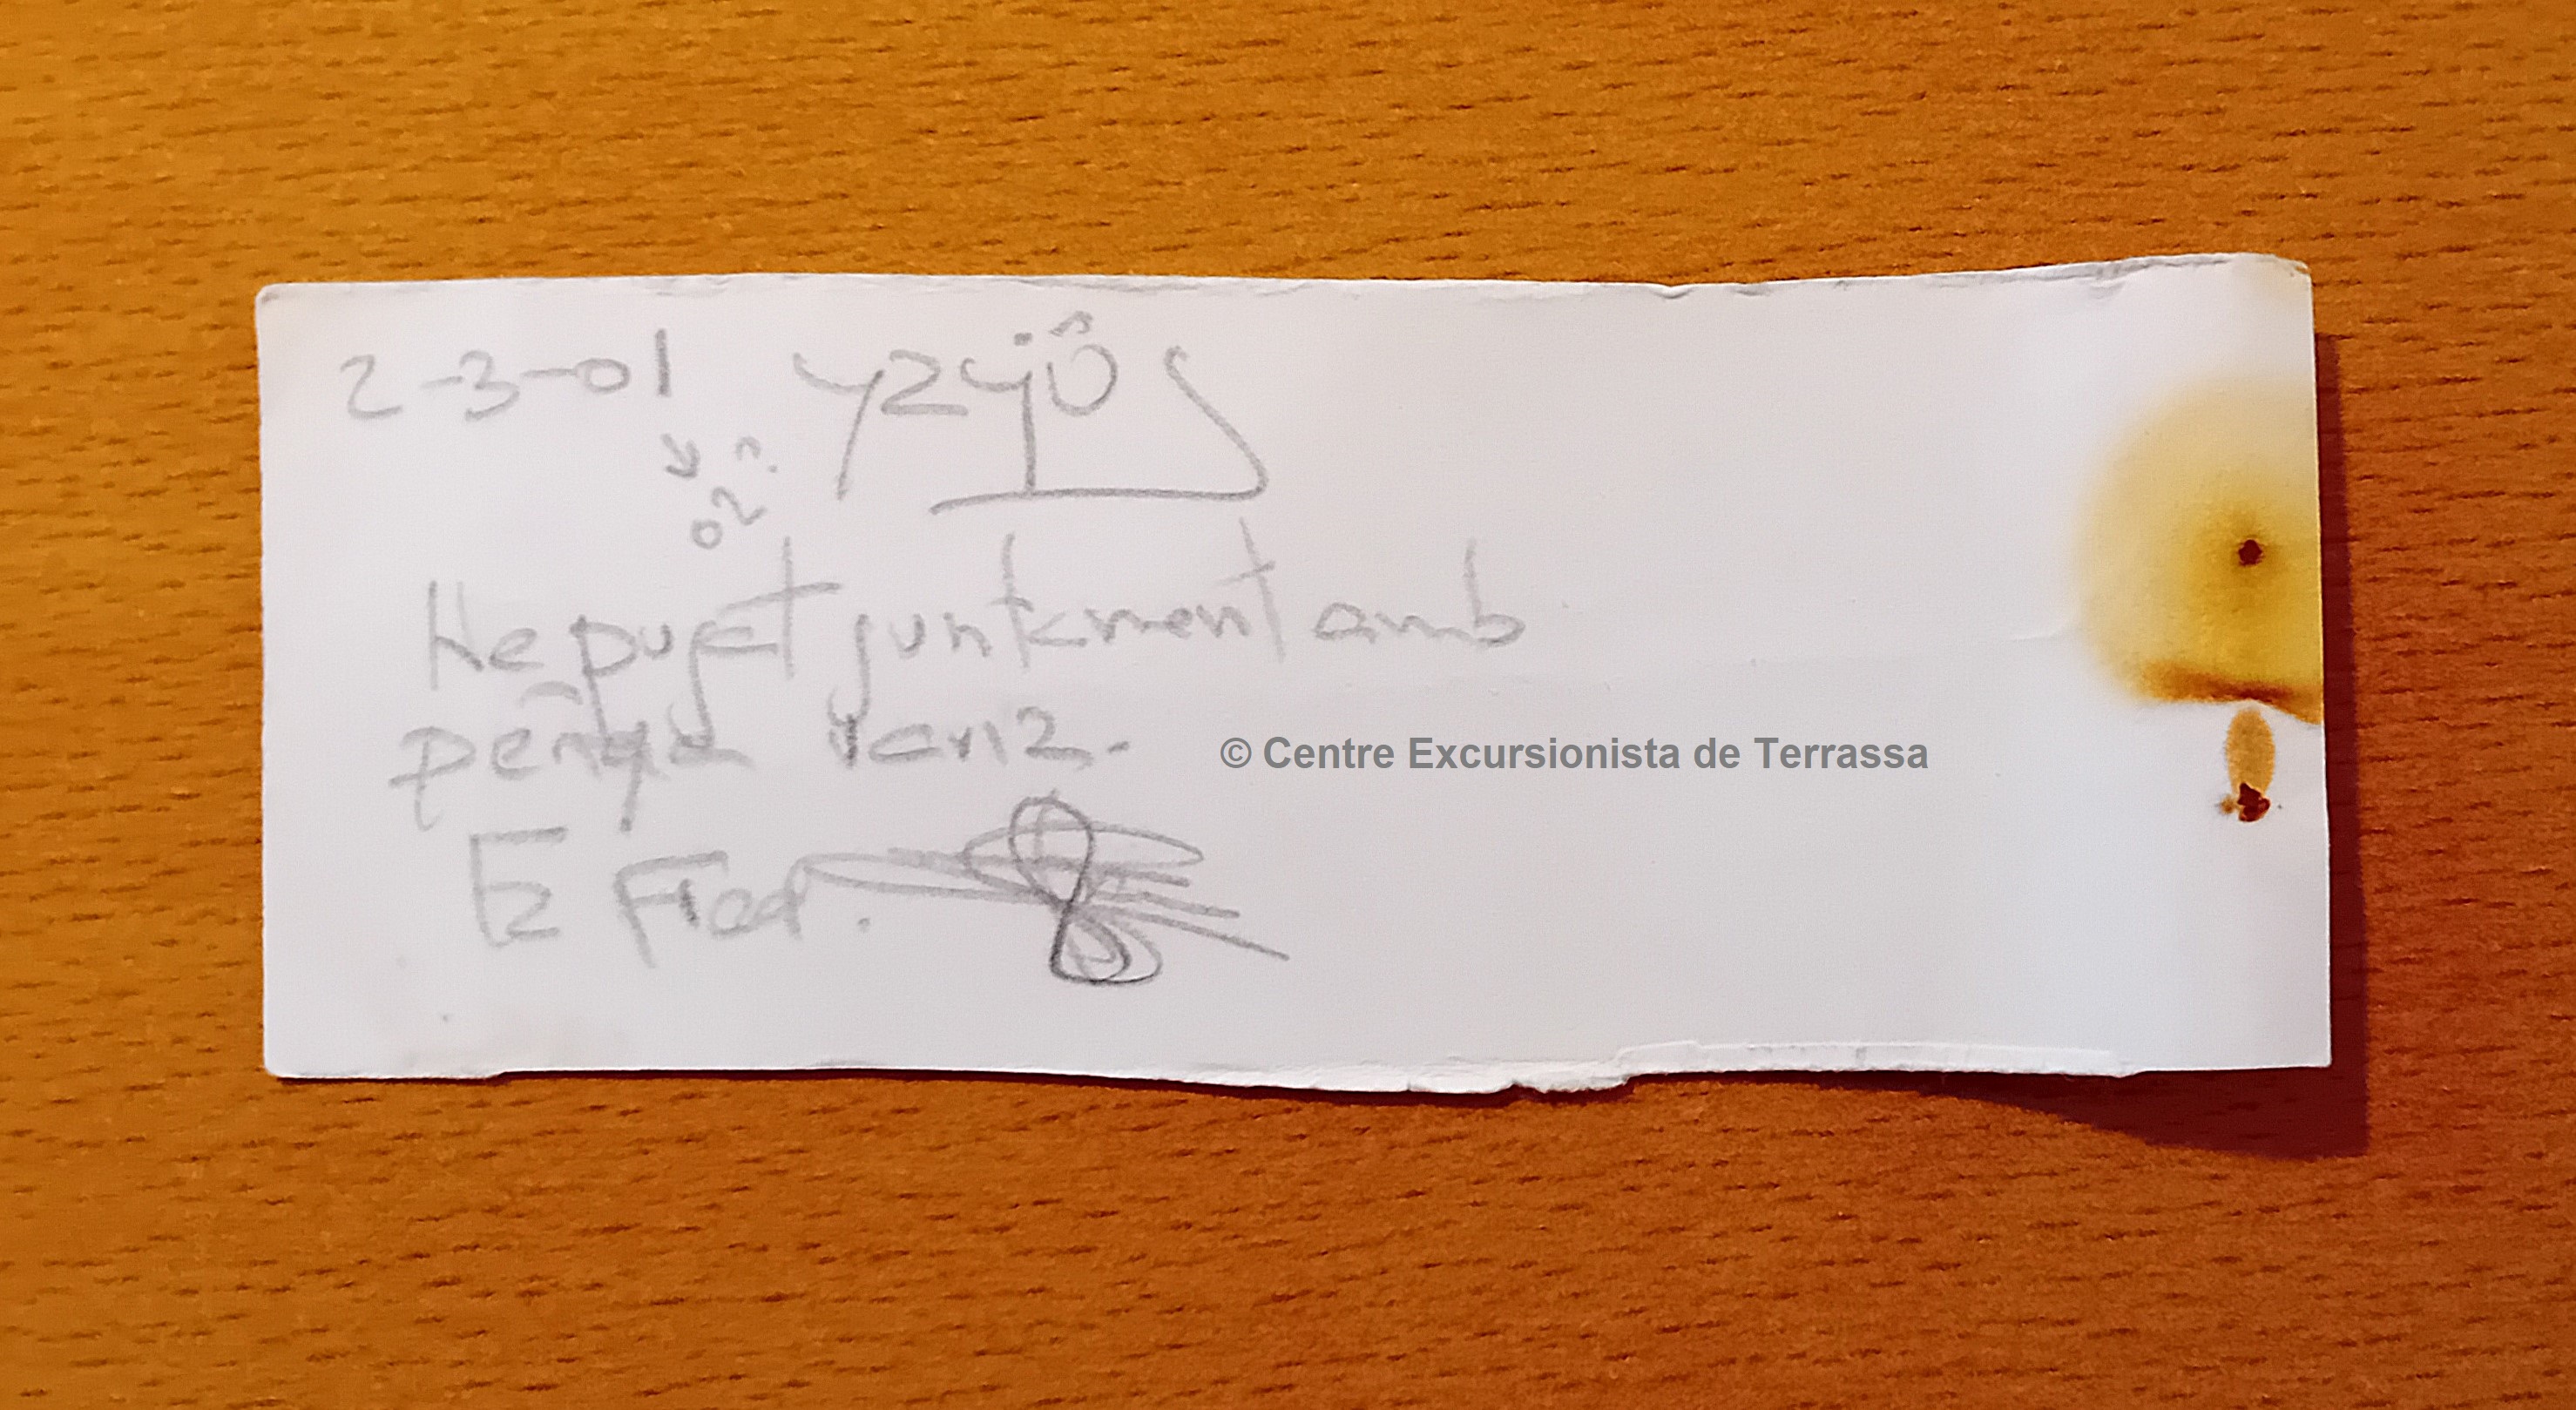 2-3-01
↘ 02?
He pujat juntament amb
penya
E Fred.
© Centre Excursionista de Terrassa